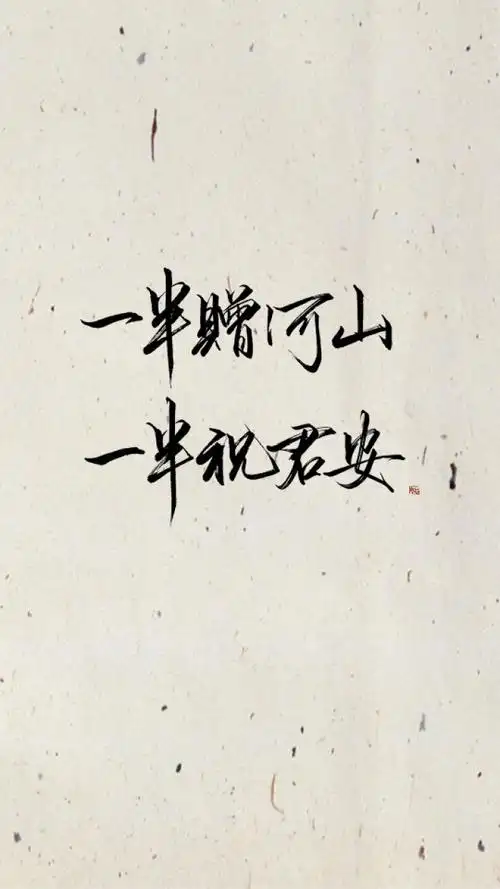 一半贈河山
一半祝君安